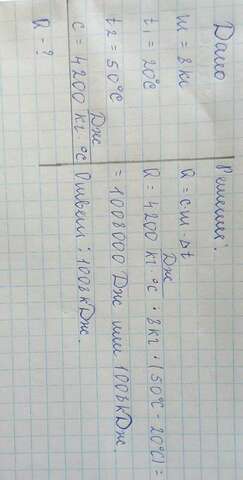 Дано
m = 8 кг
t₁ = 20°C
t₂ = 50°C
c = 4200 Дж/кг·°C
Q - ?
Решение:
Q = c·m·Δt
Q = 4200 Дж/кг·°C · 8кг · (50°C - 20°C) =
= 1008000 Дж или 1008 кДж.
Ответ: 1008 кДж.